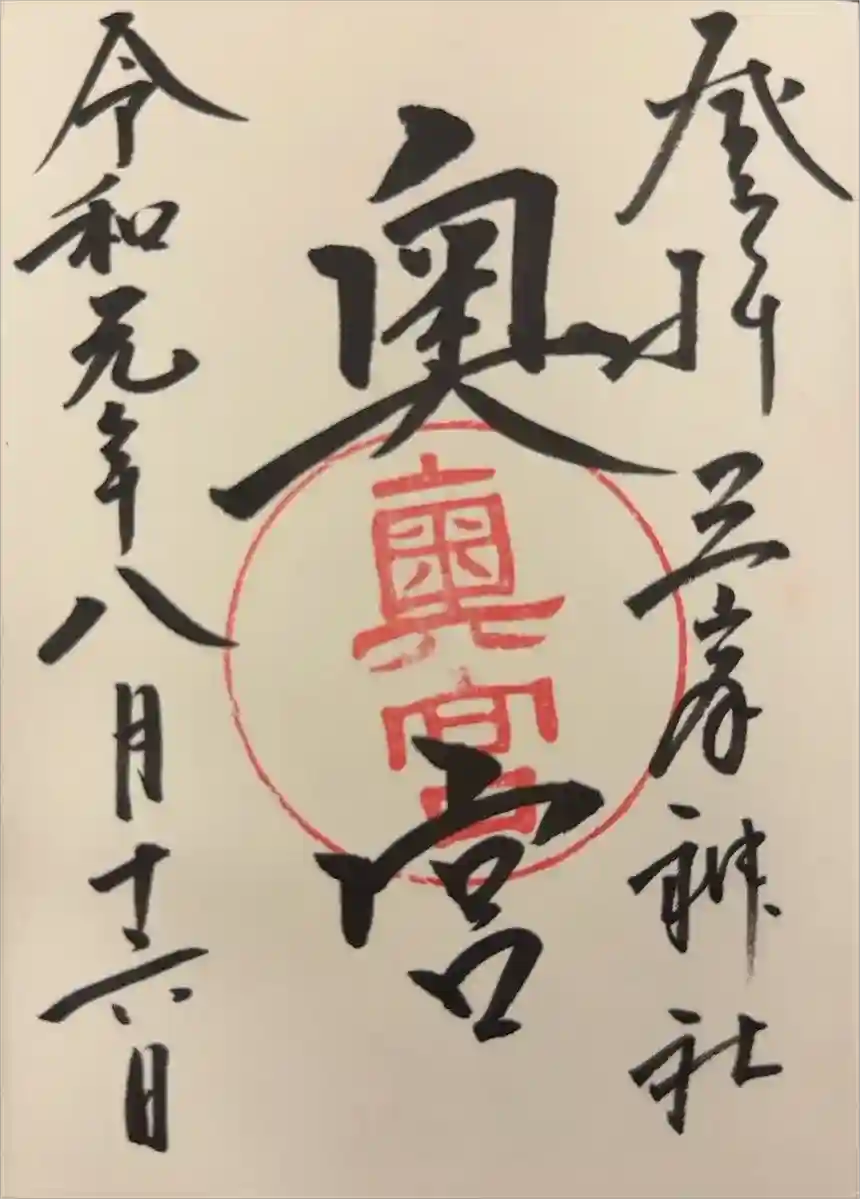 登拝 三峯神社
奥宮
奥宮
令和元年八月十六日